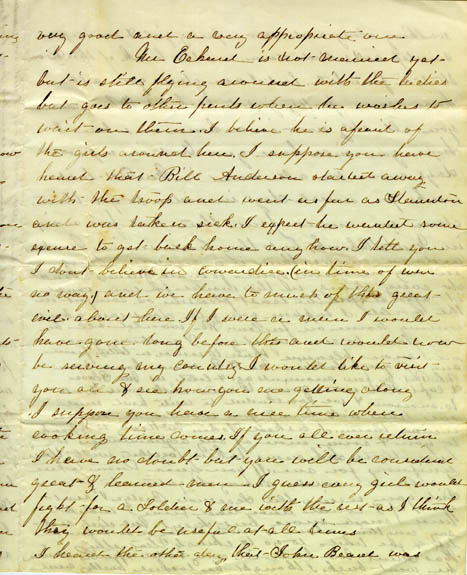 very good and a very appropriate one
Mr Eckerd is not married yet
but is still flying around with the ladies
but goes to other parts when he wishes to
wait on them. I believe he is afraid of
the girls around here. I suppose you have
heard that Bill Anderson started away
with the troop and went as far as Staunton
and was taken sick. I expect he wanted some
excuse to get back home anyhow. I tell you
I dont believe in cowardice (in time of war
no way) and we have to much of this great
evil about here. If I were a man I would
have gone long before this and would now
be serving my country. I would like to visit
you all & see how you are getting along
I suppose you have a nice time when
cooking time comes. If you all ever return
I have no doubt but you will be considered
great & learned men. I guess every girl would
fight for a Soldier & me with the rest as I think
they would be useful at all times
I heard the other day, that John Beard was